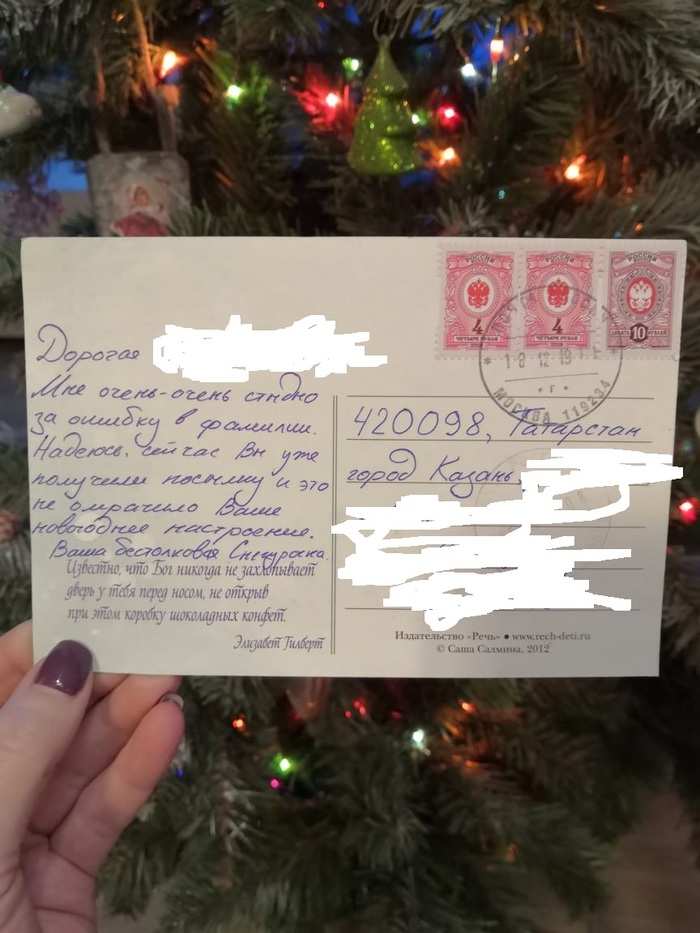 РОССИЯ
4
ЧЕТЫРЕ РУБЛЯ
2019
РОССИЯ
4
ЧЕТЫРЕ РУБЛЯ
2019
РОССИЯ
10
ДЕСЯТЬ РУБЛЕЙ
18 12 19
Г
МОСКВА 119234
Дорогая
Мне очень-очень стыдно
за ошибку в фамилии.
Надеюсь, сейчас Вы уже
получили посылку и это
не омрачило Ваше
новогоднее настроение.
Ваша бестолковая Снегурочка.
Известно, что Бог никогда не захлопывает
дверь у тебя перед носом, не открыв
при этом коробку шоколадных конфет.
Элизабет Гилберт
420098, Татарстан
город Казань,
Издательство «Речь» • www.rech-deti.ru
© Саша Салмина, 2012